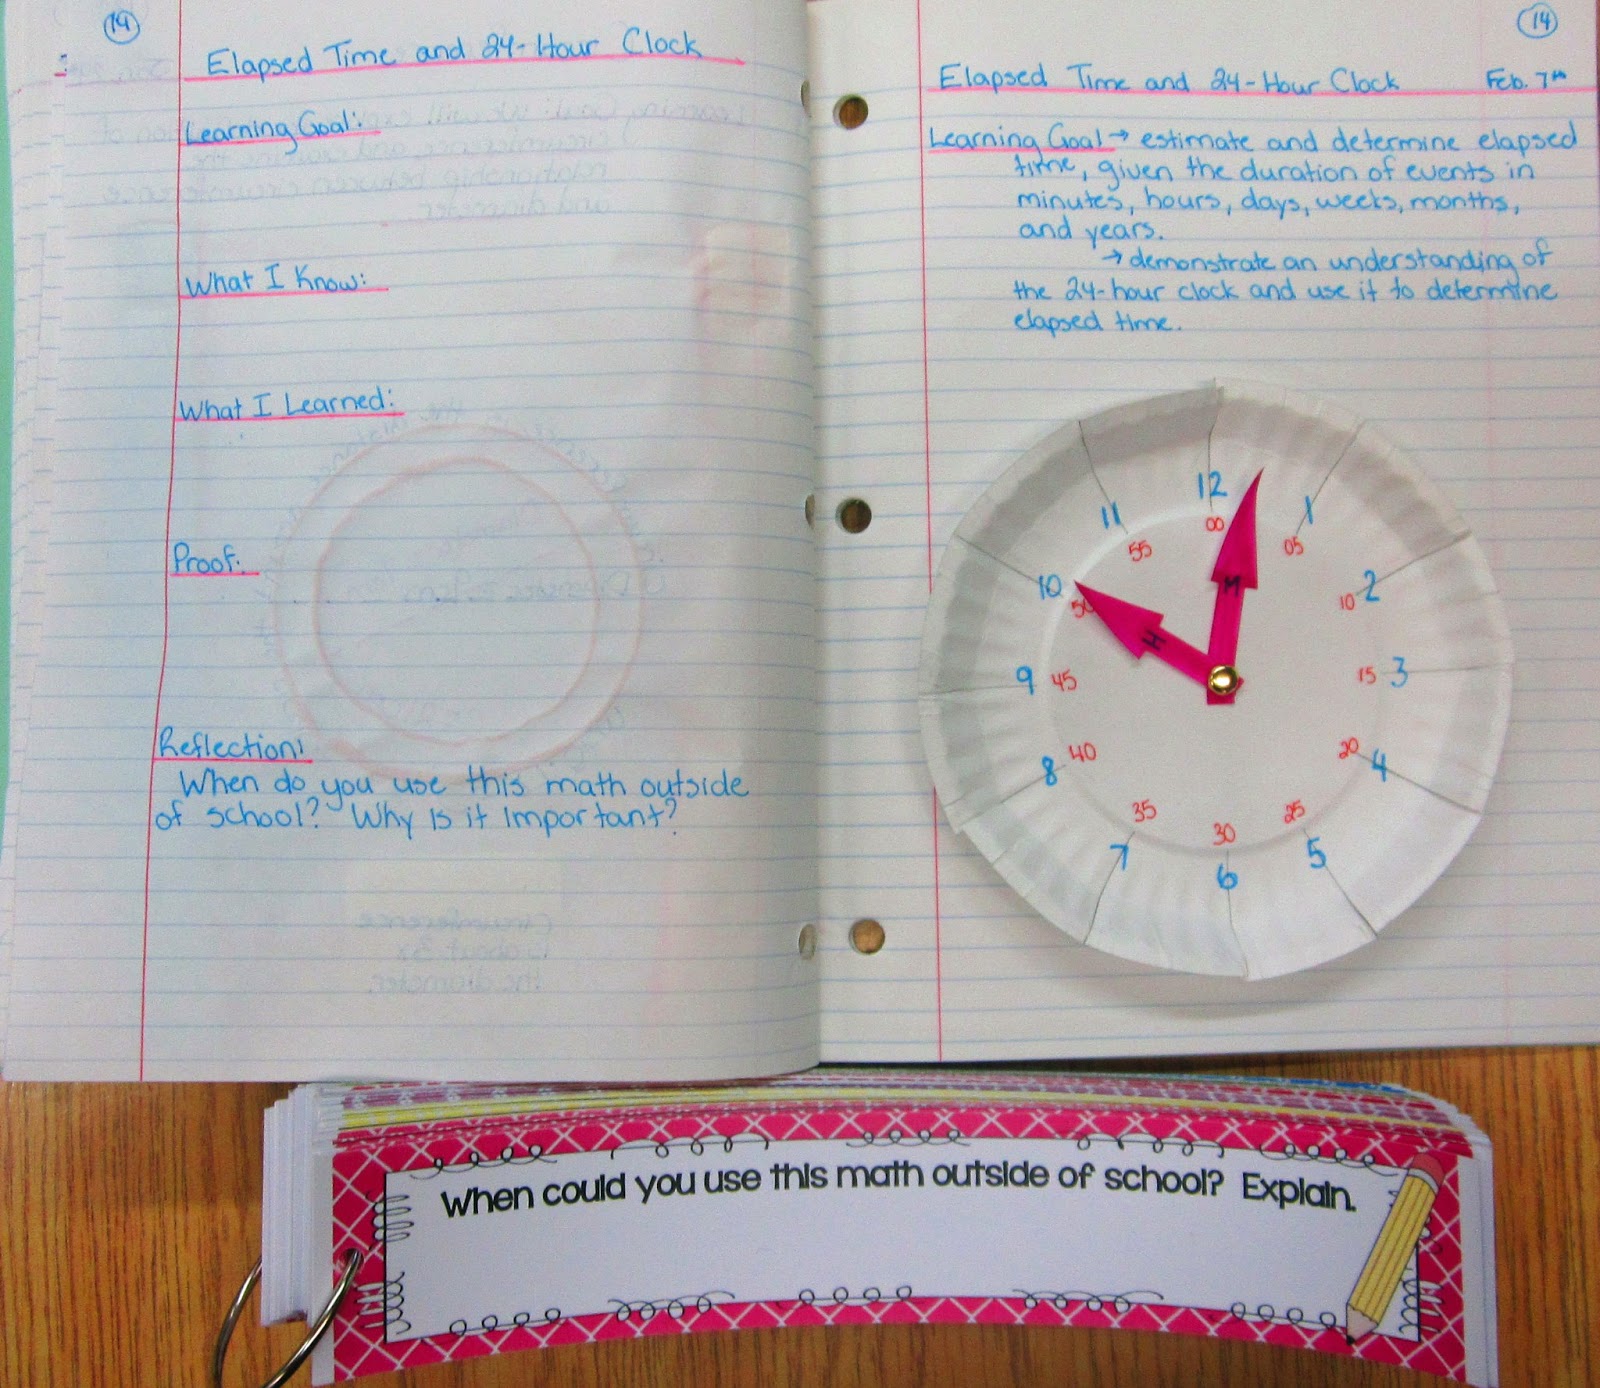 14
Elapsed Time and 24-Hour Clock
Learning Goal:
What I Know:
What I Learned:
Proof:
Reflection:
When do you use this math outside
of school? Why is it important?
14
Elapsed Time and 24-Hour Clock Feb. 7th
Learning Goal → estimate and determine elapsed
time, given the duration of events in
minutes, hours, days, weeks, months,
and years.
→ demonstrate an understanding of
the 24-hour clock and use it to determine
elapsed time.
12
00
1
05
2
10
3
15
4
20
5
25
6
30
7
35
8
40
9
45
10
50
11
55
H
M
When could you use this math outside of school? Explain.